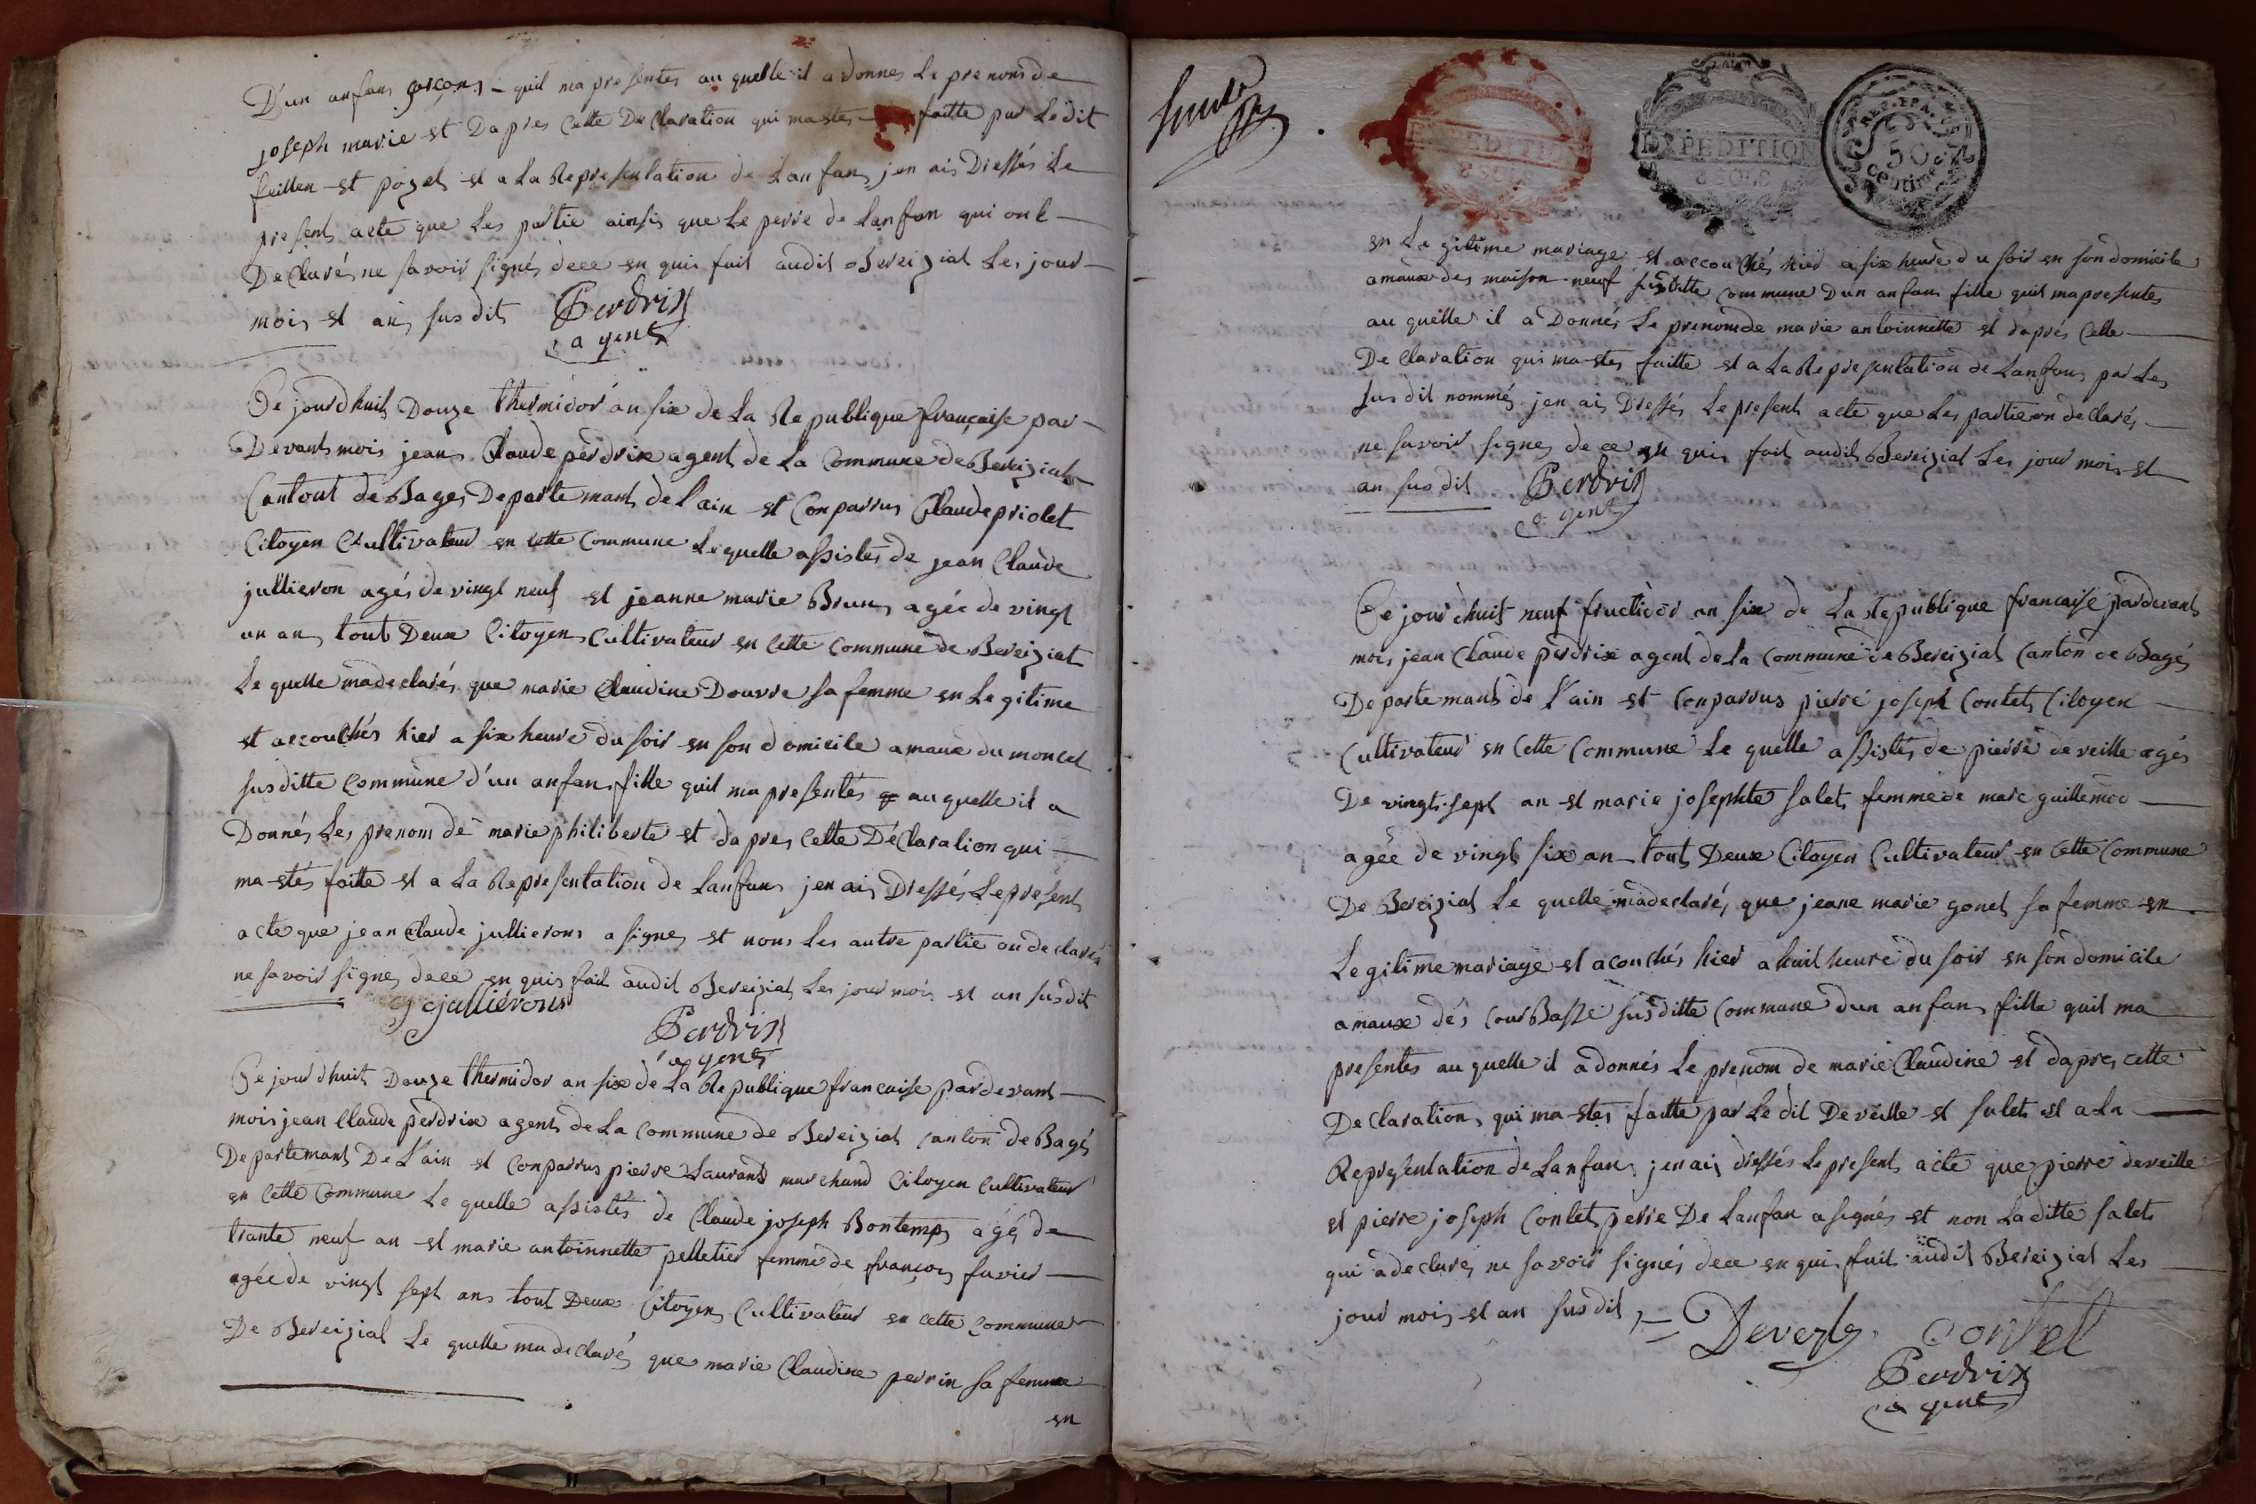 D'un anfans garçons - quil ma presentes au quelle il a donnes Le prenom de
joseph marie et Dapres cette Declaration qui mastes faitte par Le dit
feillen et pozet et a La Representation de Lanfans jen ais Dressés Le
present acte que Les partie ainsis que Le perre de Lanfan qui ont
Declarés ne savoir signés dece en quis fait audit Bereiziat Les jour
mois et ans susdits Perdrix
agent
Ce jourdhuit Douze thermidor an six de La Republique française par
Devant mois jean Claude perdrix agent de La Commune de Bereiziat
Cantont de Bages Departemant de l'ain et Conparrus Claude priolet
Citoyen Cultivateur en cette Commune Le quelle assistés de jean Claude
jullieron agés de vingt neuf et jeanne marie Brun agée de vingt
un an tout Deux Citoyen Cultivateur en Cette Commune de Bereiziat
Le quelle madeclarés que marie Claudine Douvre sa femme en Legitime
et accouchés hier a six heure du soir en son domicile amaux du moncel
susditte Commune d'un anfans fille quil ma presentés au quelle il a
Donnés Les prenom de marie philiberte et dapres Cette Déclaration qui
ma-stés faitte et a La Representation de Lanfans jen ais Dressés Le present
acte que jean Claude jullierons a signes et nons Les autre partie on declarés
ne savoir signes dece en quis fait audit Bereiziat Les jour mois et an susdit
jcjulliérons
Perdrix
agent
Ce jourdhuit Douze thermidor an six de La Republique francaise pardevant
mois jean Claude perdrix agent de La Commune de Bereiziat canton de Bagé
Departemant De L'ain et Conparrus pierre Laurant marchand Citoyen Cultivateur
en Cette Commune Le quelle assistés de Claude joseph Bontemps agé de
trante neuf an et marie antoinnette pelletier femme de françois favier
agée de vingt sept ans tout Deux Citoyen Cultivateur en cette Commune
De Bereiziat Le quelle madeclaré que marie Claudine perrin sa femme
en
EXPEDITION
8 SOLS
EXPEDITION
8 SOLS
REP. FRA.
50
centime
en La gitime mariage et accouchés hier a six heure du soir en son domicile
amaux des maison neuf susditte Commune Dun anfans fille quil ma presentes
au quelle il a Donnés Le prenom de marie antoinnette et daprés Cette
Declaration qui ma-stes faitte et a La Representation de Lanfans par Les
susdit nommés jen ais Dressés Le present acte que Les partie on declarés
ne savoir signes de ce en quis fait audit Bereiziat Les jour mois et
an susdit Perdrix
agent
Ce jour dhuit neuf fructidor an six de La Republique francaise pardevant
mois jean Claude perdrix agent de La Commune de Bereiziat Canton de Bagés
Departemant de l'ain et Conparrus pierre joseph Contet Citoyen
Cultivateur en Cette Commune Le quelle assistés de pierre deveille agés
De vingt-sept an et marie josephte salet femme de marc guillemeo
agée de vingt six an tout Deux Citoyen Cultivateur en Cette Commune
De Bereiziat Le quelle madeclarés que jeane marie gonet sa femme en
Legitime mariage et acouchés hier a huit heure du soir en son domicile
amaux dés courBasse susditte Commune dun anfans fille quil ma
presentes au quelle il a donnés Le prenom de marie Claudine et dapres cette
Declarations qui ma-stes faitte par Le dit Deveille et salet et a La
Representation de Lanfans jen ais dressés Le present acte que pierre deveille
et pierre joseph Contet perre De Lanfan a signés et non La ditte salet
qui a declarés ne savoir signés dece en quis fait audit Bereiziat Les
jour mois et an susdit
Deveyle Contet
Perdrix
agent